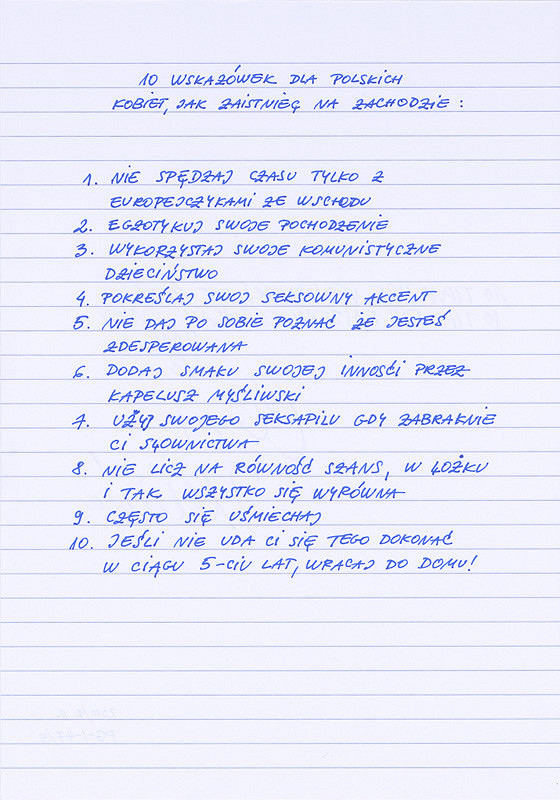 10 WSKAZÓWEK DLA POLSKICH
KOBIET, JAK ZAISTNIEĆ NA ZACHODZIE :
1. NIE SPĘDZAJ CZASU TYLKO Z
EUROPEJCZYKAMI ZE WSCHODU
2. EGZOTYKUJ SWOJE POCHODZENIE
3. WYKORZYSTAJ SWOJE KOMUNISTYCZNE
DZIECIŃSTWO
4. POKREŚLAJ SWOJ SEKSOWNY AKCENT
5. NIE DAJ PO SOBIE POZNAĆ ŻE JESTEŚ
ZDESPEROWANA
6. DODAJ SMAKU SWOJEJ INNOŚCI PRZEZ
KAPELUSZ MYŚLIWSKI
7. UŻYJ SWOJEGO SEKSAPILU GDY ZABRAKNIE
CI SŁOWNICTWA
8. NIE LICZ NA RÓWNOŚĆ SZANS, W ŁOŻKU
I TAK WSZYSTKO SIĘ WYRÓWNA
9. CZĘSTO SIĘ UŚMIECHAJ
10. JEŚLI NIE UDA CI SIĘ TEGO DOKONAĆ
W CIĄGU 5-CIU LAT, WRACAJ DO DOMU!